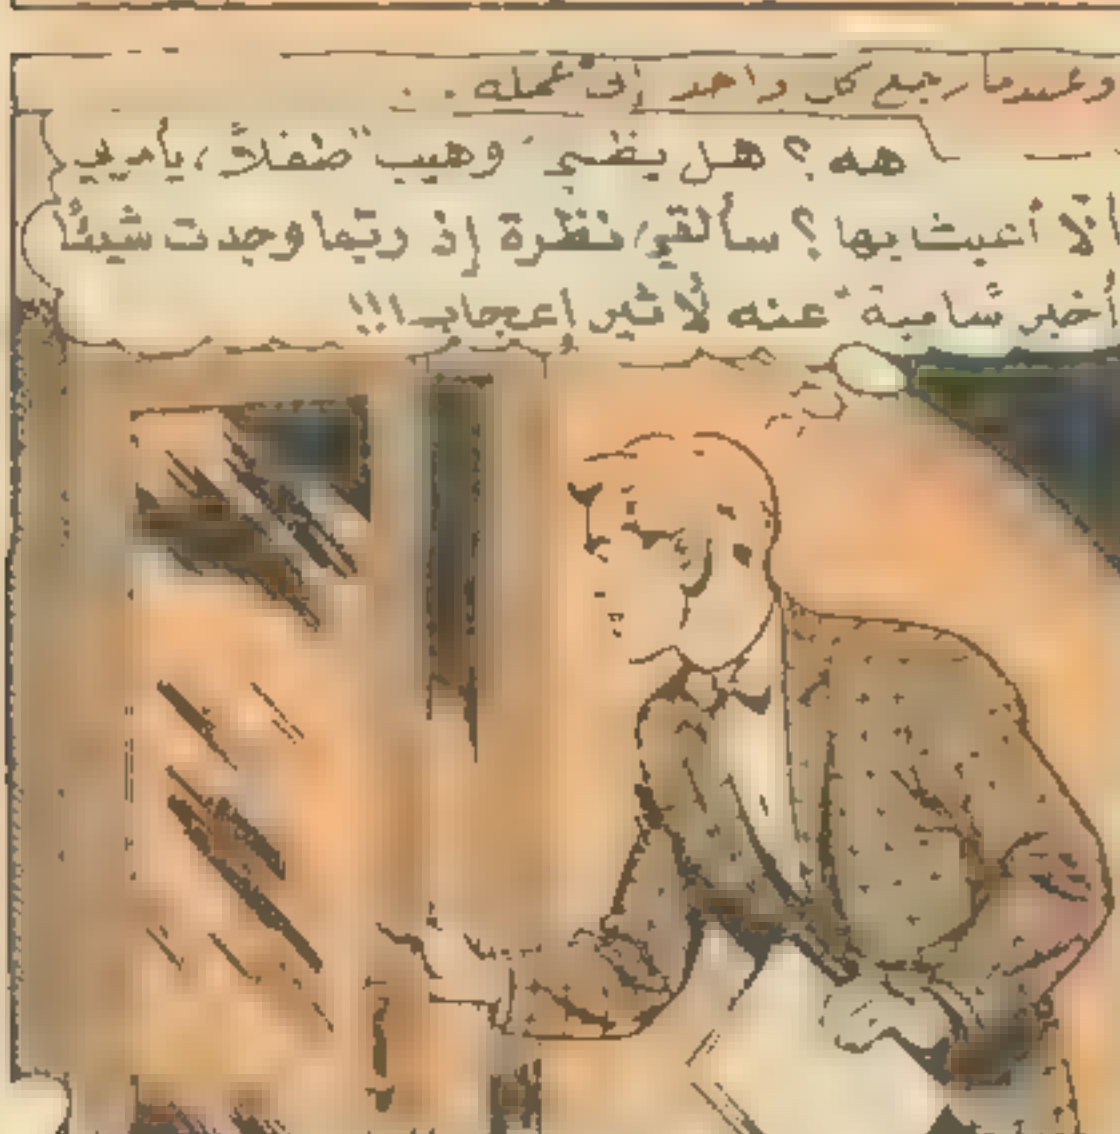 وعندما رجع كل واحد إلى عمله . .
هه ؟ هل يظنني " وهيب " طفلاً ، يأمرني
ألّا أعبث بها ؟ سألقي نظرة إذ ربّما وجدت شيئًا
أخبر " سامية " عنه لأثير إعجابها !!